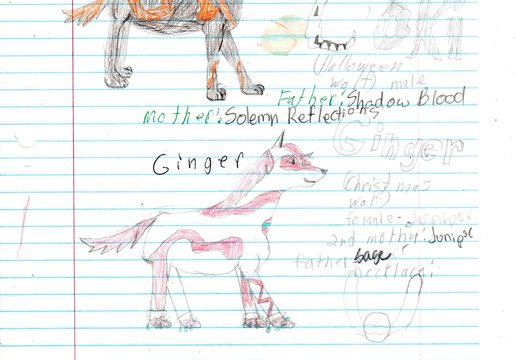 (Halloween
wolf) male
Father: Shadow Blood
mother: Solemn Reflections
Ginger
Ginger
(Christmas
wolf)
female - Juniper
2nd mother: Juniper
father Sage
necklace: